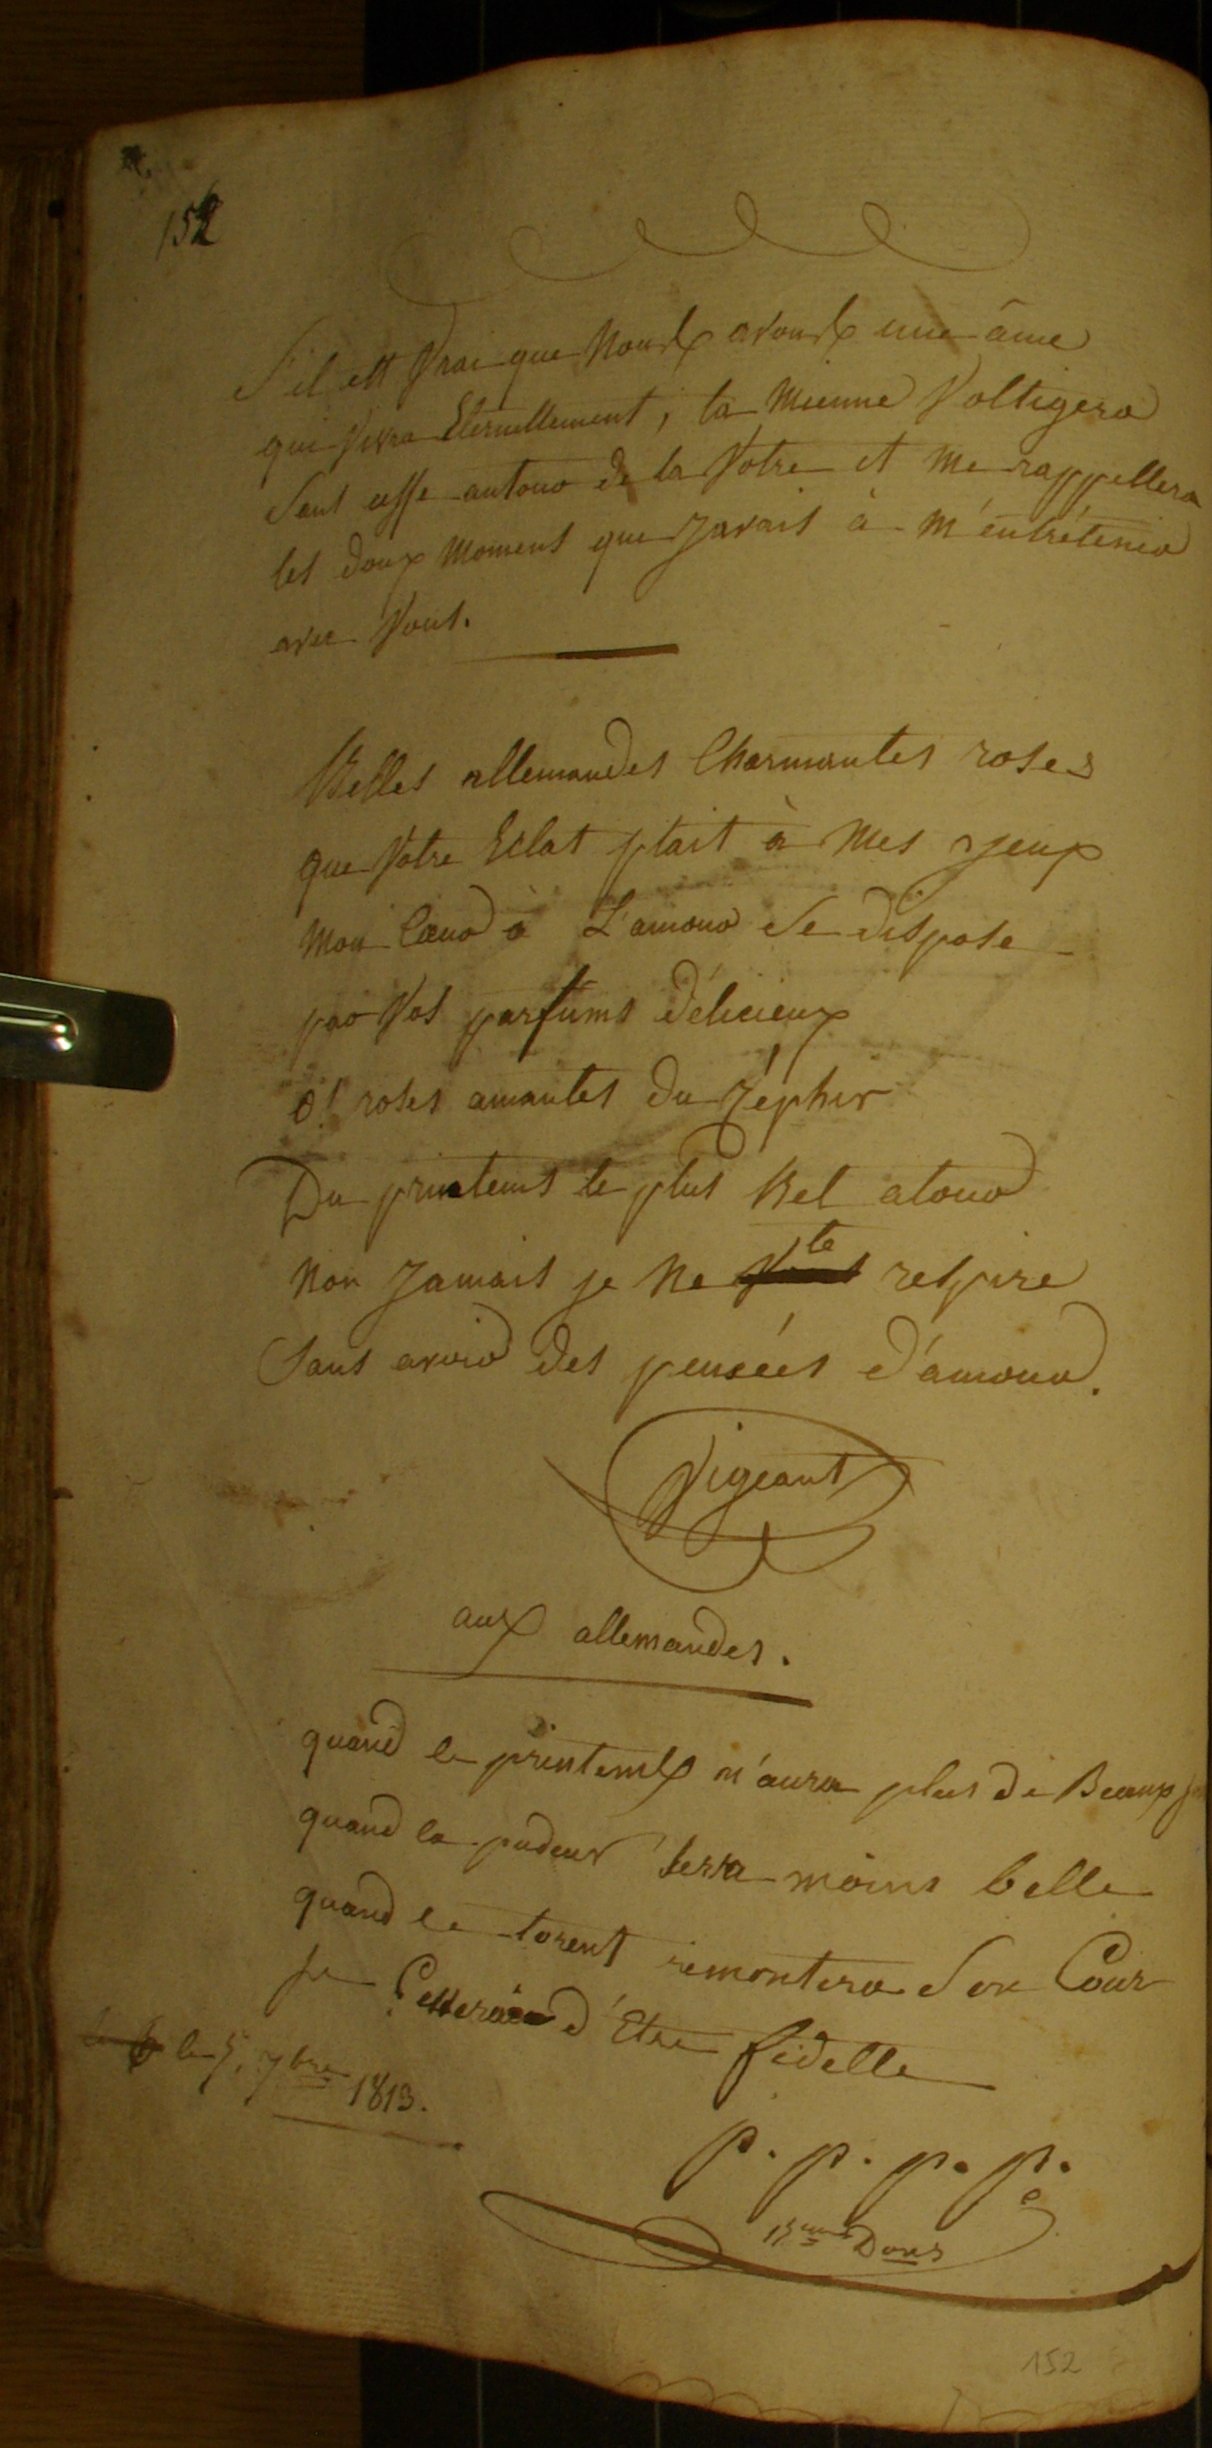 152
S'il est Vrai que Nous avons une âme
qui Vivra Eternellement, la Mienne Voltigera
Sans cesse autour de la Votre et Me rappellera
les doux Momens que Javais à M'entrétenir
avec Vous.
Belles allemandes Charmantes roses
que Votre Eclat plait à Mes yeux
Mon Cœur à L'amour Se dispose
par Vos parfums délicieux
O! roses amantes du Zéphir
Du printems le plus Bel atour
Non Jamais je Ne Vous le respire
Sans avoir des pensées d'amour.
Vigeant
aux allemandes.
quand le printems n'aura plus de Beaux
quand la pudeur serra moins belle
quand le torent remontera Son Cour
Je Cesserai d'Etre fidelle
le 5. 7bre 1813.
p. p. p. p.
15me Dons
152